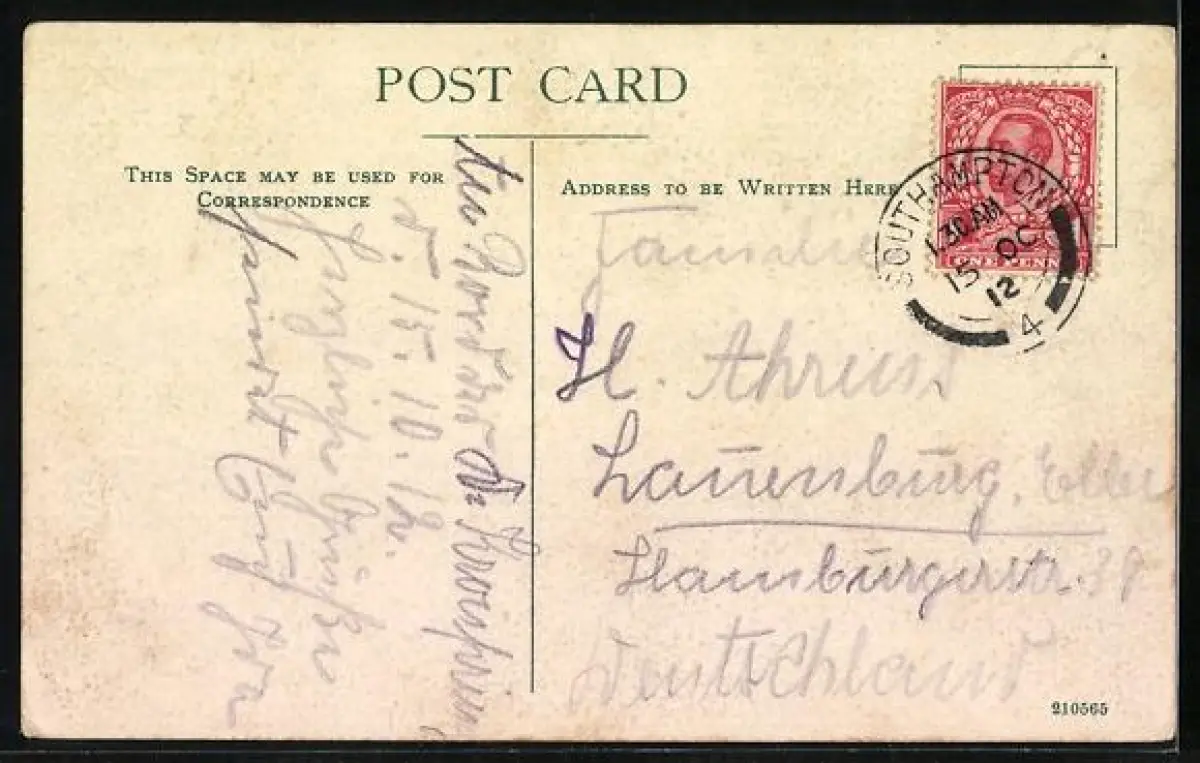 POST CARD
THIS SPACE MAY BE USED FOR
CORRESPONDENCE
ADDRESS TO BE WRITTEN HERE
SOUTHAMPTON
1.30 AM
15 OC
12
4
ONE PENNY
Familie
H. Ahrens
Lauenburg, Elbe
Hamburgerstr. 38
Deutschland
An Bord des
d. 15. 10. 12.
Herzliche Grüße
210565